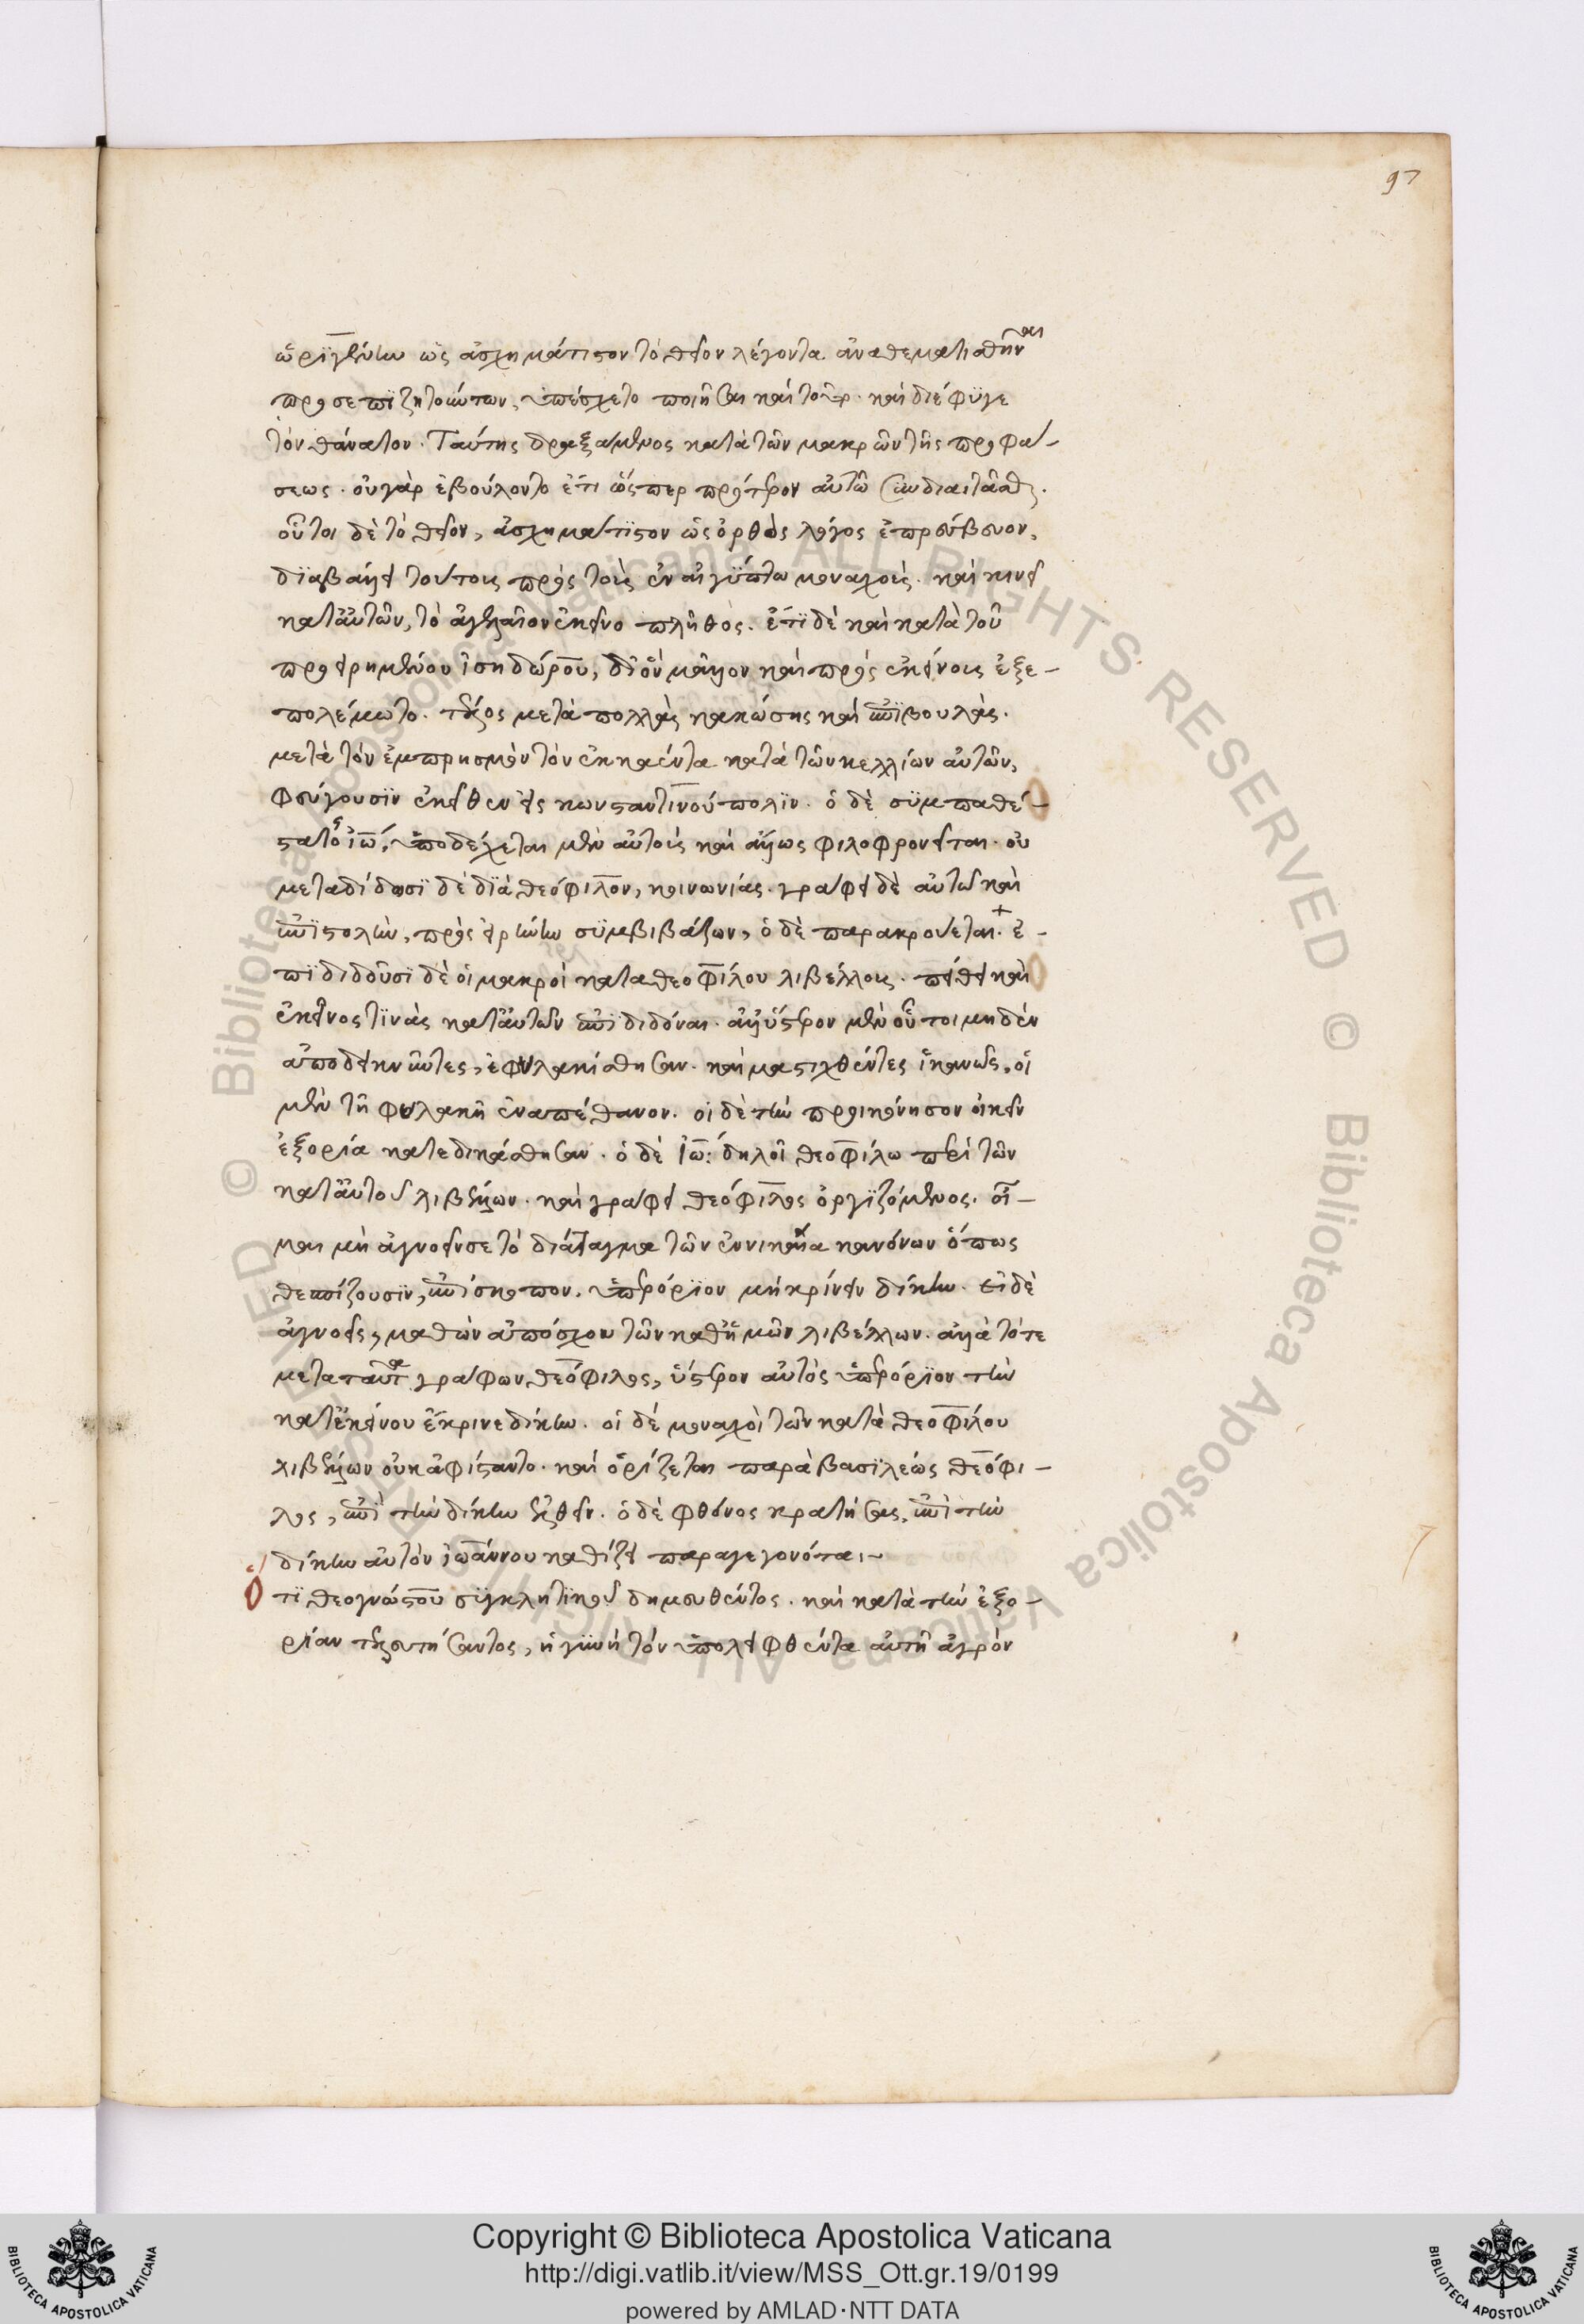 97
ὠριγένην ὡς ἀσχημάτιστον τὸ θεῖον λέγοντα ἀναθεματισθῆναι
προσεπιζητούντων, ὑπέσχετο ποιῆσαι καὶ τοῦτο. καὶ διέφυγε
τὸν θάνατον. Ταύτης δραξάμενος κατὰ τῶν μακρῶν τῆς προφά-
σεως. οὐ γὰρ ἐβούλοντο ἔτι ὥσπερ πρότερον αὐτῶ συνδιαιτᾶσθαι.
οὗτοι δὲ τὸ θεῖον, ἀσχημάτιστον ὡς ὀρθὸς λόγος ἐπρέσβευον,
διαβάλλει τούτους πρὸς τοὺς ἐν αἰγύπτω μοναχούς. καὶ κινεῖ
κατ' αὐτῶν, τὸ ἀγελαῖον ἐκεῖνο πλῆθος. ἔτι δὲ καὶ κατὰ τοῦ
προειρημένου ἰσηδώρου, δι' ὃν μᾶλλον καὶ πρὸς ἐκείνους ἐξε-
πολέμωτο. τέλος μετὰ πολλὰς κακώσεις καὶ ἐπιβουλὰς.
μετὰ τὸν ἐμπρησμὸν τὸν ἐκκαέντα κατὰ τῶν κελλίων αὐτῶν,
φεύγουσιν ἐκεῖθεν εἰς κωνσταντινούπολιν. ὁ δὲ συμπαθέ-
στατος ἰω, ὑποδέχεται μὲν αὐτοὺς καὶ ἄλλως φιλοφρονεῖται. οὐ
μεταδίδωσι δὲ διὰ θεόφιλον, κοινωνίας. γράφει δὲ αὐτῶ καὶ
ἐπιστολὴν, πρὸς εἰρήνην συμβιβάζων, ὁ δὲ παρακρούεται. ἐ-
πιδιδοῦσι δὲ οἱ μακροὶ κατα θεοφίλου λιβέλλους. πείθει καὶ
ἐκεῖνος τινὰς κατ' αὐτῶν ἐπιδιδόναι. ἀλλ' ὕστερον μὲν οὗτοι μηδὲν
ἀποδεικνῦντες, ἐφυλακίσθησαν. καὶ μαστιχθέντες ἱκανῶς, οἱ
μὲν τῆ φυλακῆ ἐναπέθανον. οἱ δὲ τὴν προικόνησον οἰκεῖν
ἐξορία κατεδικάσθησαν. ὁ δὲ ἰω: δηλοῖ θεοφίλω περὶ τῶν
κατ' αὐτοῦ λιβέλλων. καὶ γράφει θεόφιλος ὀργιζόμενος. οἶ-
μαι μὴ ἀγνοεῖν σε τὸ διάταγμα τῶν ἐν νικαία κανόνων ὅπως
θεσπίζουσιν, ἐπίσκοπον. ὑπερόριον μὴ κρίνειν δίκην. εἰ δὲ
ἀγνοεῖς, μαθὼν ἀπόσχου τῶν καθ' ἡμῶν λιβέλλων. ἀλλὰ τότε
μετα ταῦτα γράφων θεόφιλος, ὕστερον αὐτὸς ὑπερόριον τὴν
κατ' ἐκείνου ἔκρινε δίκην. οἱ δὲ μοναχοὶ τῶν κατὰ θεοφίλου
λιβέλλων οὐκ ἀφίσταντο. καὶ ὁρίζεται παρὰ βασιλεώς θεόφι-
λος, ἐπὶ τὴν δίκην ἐλθεῖν. ὁ δὲ φθόνος κρατήσας, ἐπὶ τὴν
δίκην αὐτὸν ἰωάννου καθίζει παραγεγονότα:-
Ὅτι θεογνώστου συγκλητικοῦ δημευθέντος. καὶ κατὰ τὴν ἐξο-
ρίαν τελευτήσαντος, ἡ γυνὴ τὸν ὑπολειφθέντα αὐτῆ ἀγρὸν
© Biblioteca Apostolica Vaticana ALL RIGHTS RESERVED
Copyright © Biblioteca Apostolica Vaticana
http://digi.vatlib.it/view/MSS_Ott.gr.19/0199
powered by AMLAD·NTT DATA
BIBLIOTECA APOSTOLICA VATICANA
BIBLIOTECA APOSTOLICA VATICANA